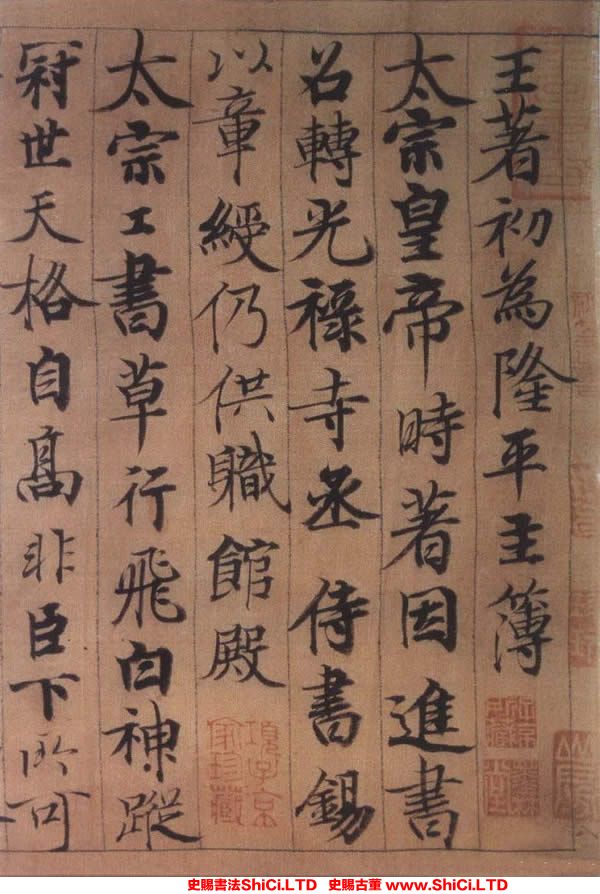 王著初為隆平主簿
太宗皇帝時著因進書
召轉光祿寺丞侍書錫
以章綬仍供職館殿
太宗工書草行飛白神蹤
冠世天格自高非臣下所可
項子京家珍藏
史賜書法ShiCi.LTD 史賜古董 www.ShiCi.LTD